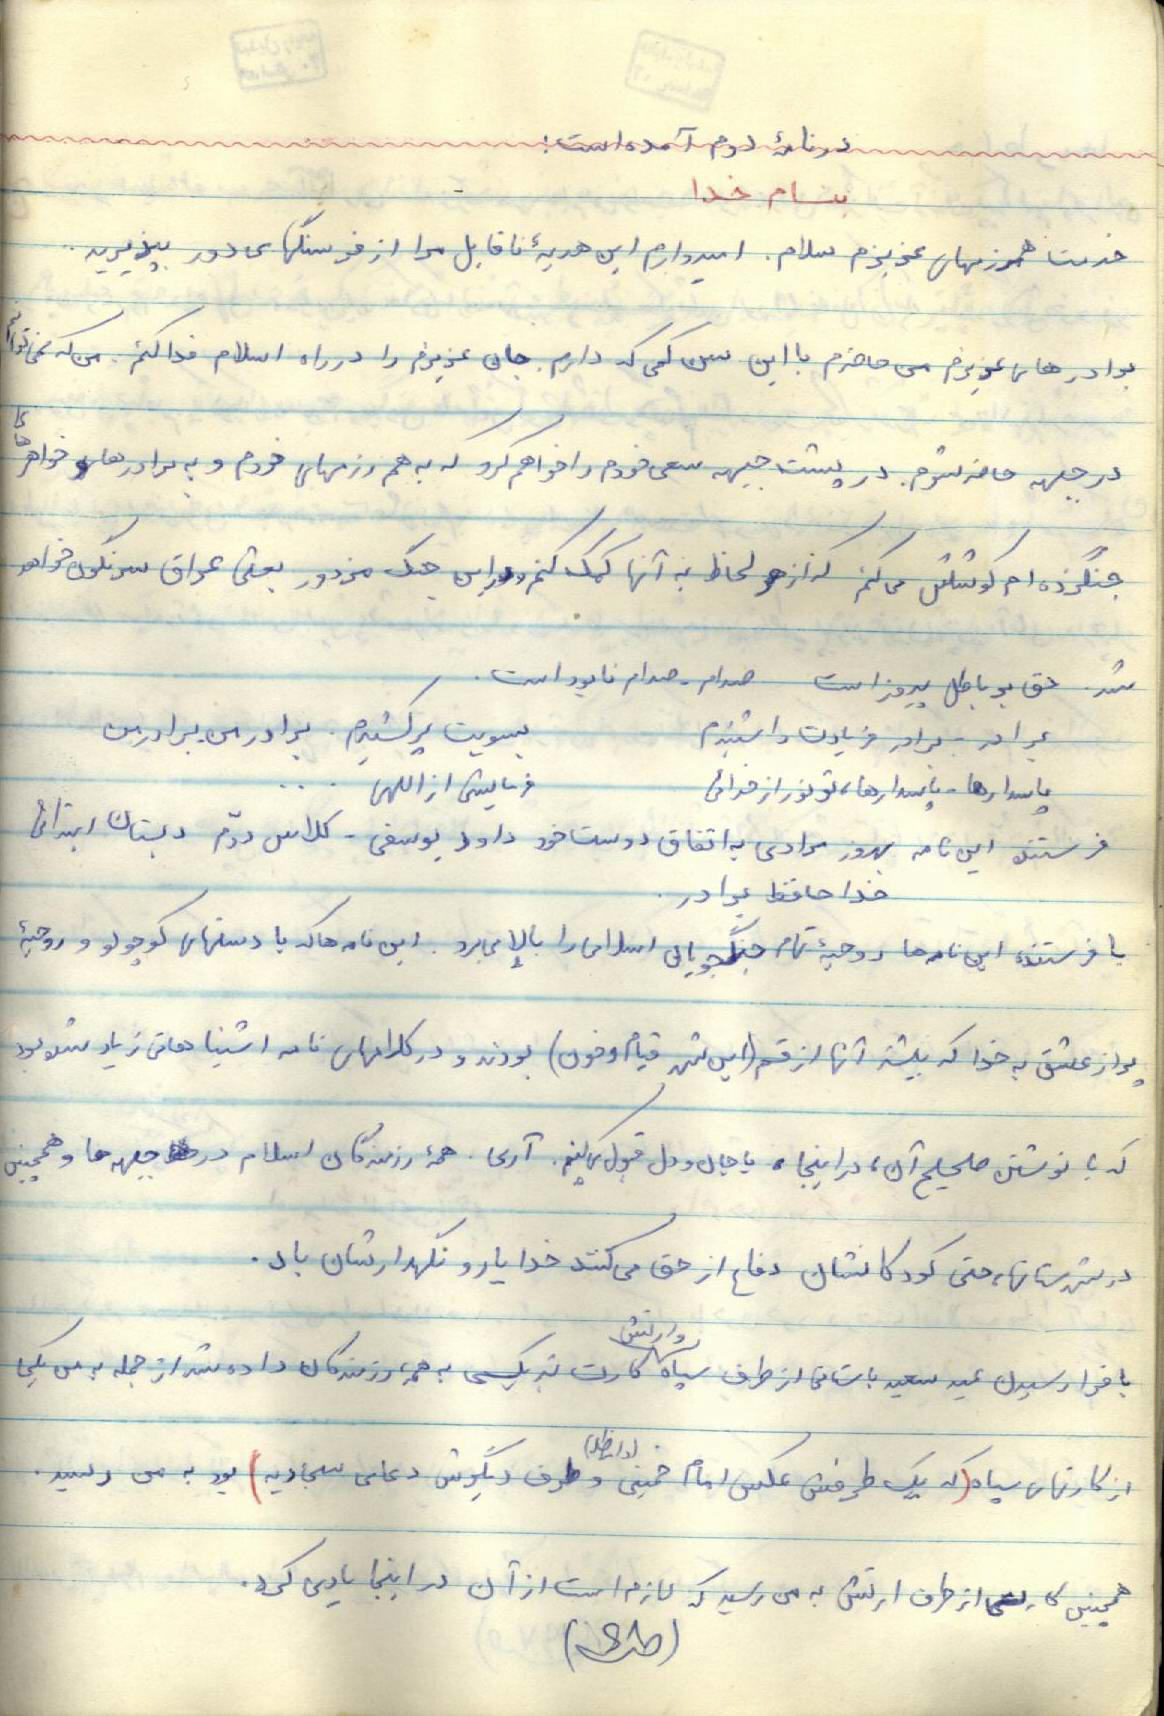 در نامهٔ دوم آمده است:
بنام خدا
خدمت همرزمهای عزیزم سلام. امیدوارم این هدیهٔ ناقابل مرا از فرسنگهای دور بپذیرید..
برادرهای عزیزم من حاضرم با این سن کمی که دارم جان عزیزم را در راه اسلام فدا کنم. من که نمی‌توانم
در جبهه حاضر شوم. در پشت جبهه سعی خودم را خواهم کرد که به هم رزمهای خودم و به برادرهای و خواهرهای
جنگزده ام کوشش می‌کنم که از هر لحاظ به آنها کمک کنم و در این جنگ مزدور بعثی عراق سرنگون خواهد
شد. حق بر باطل پیروز است صدام - صدام نابود است.
برادر - برادر فریادت را شنیدم بسویت پر کشیدم. برادر من برادر من
پاسدارها - پاسدارها، تو نور از خدائی فرمایشی از اللهی ....
فرستنده این نامه بهروز مرادی به اتفاق دوست خود داود یوسفی - کلاس دوّم دبستان ابتدائی
خدا حافظ برادر.
با فرستنده این نامه‌ها روحیهٔ تمام جنگجویان اسلامی را بالا می‌برد. این نامه ها که با دستهای کوچولو و روحیهٔ
پر از عشق به خدا که بیشتر آنها از قم (این شهر قیام و خون) بودند و در کلامهای نامه اشتباهاتی زیاد شده بود
که با نوشتن صحیح آن، در اینجا، با جان و دل قبول می‌کنیم. آری. همهٔ رزمندگان اسلام در جبهه ها و همچنین
در شهرستانها، حتی کودکانشان دفاع از حق می‌کنند خدا یار و نگهدارشان باد.
با فرا رسیدن عید سعید باستانی از طرف سپاه و ارتش کارت تبریکی به همه رزمندگان داده شد از جمله به من یکی
از کارتهای سپاه (که یک طرفش عکس امام خمینی (مدظله) و طرف دیگرش دعای سجادیه) بود به من رسید.
همچنین از طرف ارتش به من رسید که لازم است از آن در اینجا یادی کرد.